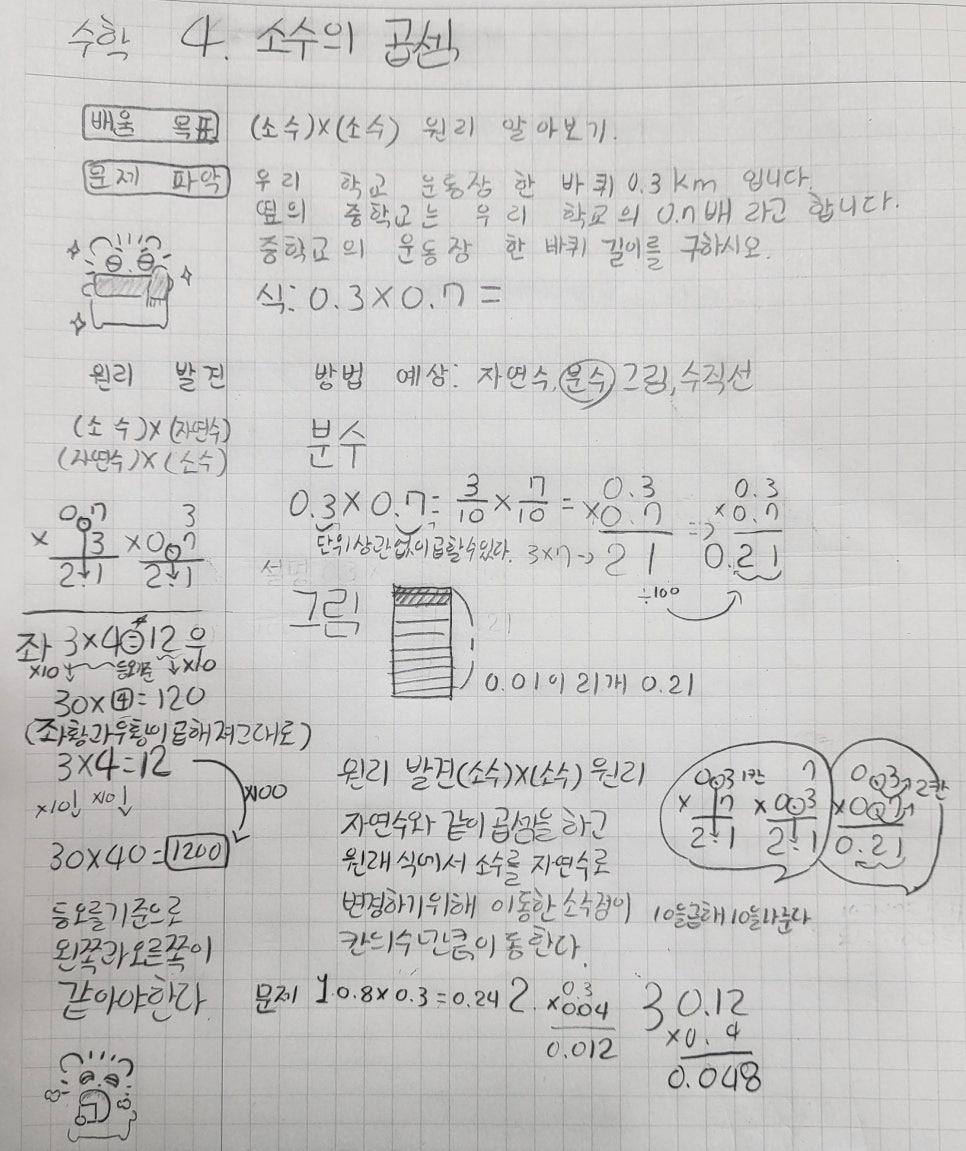 수학 4. 소수의 곱셈
배울 목표 (소수)×(소수) 원리 알아보기.
문제 파악 우리 학교 운동장 한 바퀴 0.3km 입니다.
옆의 중학교는 우리 학교의 0.7배 라고 합니다.
중학교의 운동장 한 바퀴 길이를 구하시오.
식: 0.3×0.7=
원리 발견
(소수)×(자연수)
(자연수)×(소수)
0.7 3
× 3 ×0.7
2.1 2.1
좌 3×4=12 우
×10↓ 등호기준 ↓×10
30×4=120
(좌항과 우항이 곱해져 그대로)
3×4=12
×10↓ ×10↓ ×100
30×40=1200
등호를 기준으로
왼쪽과 오른쪽이
같아야한다
방법 예상: 자연수, 분수, 그림, 수직선
분수
0.3×0.7= 3/10 × 7/10 = 0.3 ×0.7 21 ⇒ 0.3 ×0.7 0.21
단위 상관없이 곱할 수 있다. 3×7→
÷100
그림
0.01이 21개 0.21
원리 발견(소수)×(소수) 원리
자연수와 같이 곱셈을 하고
원래 식에서 소수를 자연수로
변경하기위해 이동한 소수점이
칸의수만큼 이동한다.
0.3 1칸 7 0.3 2칸
× 7 ×0.3 ×0.7
2.1 2.1 0.21
10을곱해 10을나눈다
문제 1. 0.8×0.3=0.24
2. 0.3
×0.04
0.012
3 0.12
×0.4
0.048